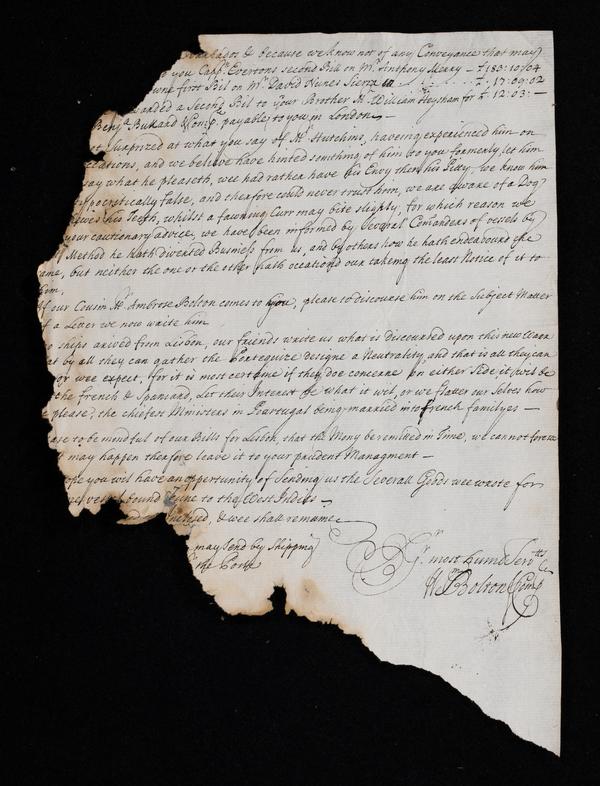 & because we know not of any Conveyance that may
you Capt. Evertons second Bill on Mr. Anthony Merry — £ 183:10:04
first Bil on Mr. David Nunes Sierra £ 17:09:02
a Second Bil to your Brother Mr. William Heysham for £ 12:03:—
Benja. Bullard & Compa. payable to you in London —
Surprized at what you say of Mr. Hutchins, haveing experienced him on
occations, and we believe have hinted somthing of him to you formerly, let him
say what he pleaseth, wee had rather have his Envy then his Pitty, we know him
hippocretically false, and therfore could never trust him, we are aware of a Dog
his Teeth, whilst a fawning Curr may bite slighly, for which reason we
your cautionary advice, we have been informed by Several Comanders of vesels by
Method he hath diverted Business from us, and by others how he hath endeavoured the
ame, but neither the one or the other hath occationd our takeing the least Notice of it to
him,
If our Cousin Mr. Ambrose Bolton comes to you, please to discourse him on the Subject Matter
of a Letter we now write him
ships arived from Lisbon, our friends write us what is discoursed upon this new Warr
at by all they can gather the Porteguize designe a Neutrality, and that is all they can
or wee expect, for it is most certaine if they doe concerne on either Side it will be
the French & Spaniard, Let they Interest be what it wil, or we flatter our Selves how
e please, the chiefest Ministers in Portugal being married into French familyes —
ase to be mindful of our Bills for Lisbon, that the Mony be remitted in Time, we cannot foresee
t may happen therfore leave it to your prudent Managment —
ope you wil have an opportunity of Sending us the Severall Goods wee wrote for
vesel bound to the West Indies —
& wee shall remaine
may Send by Shipping
the Porte
Yr. most humble Servtts.
Wm. Bolton & Comp